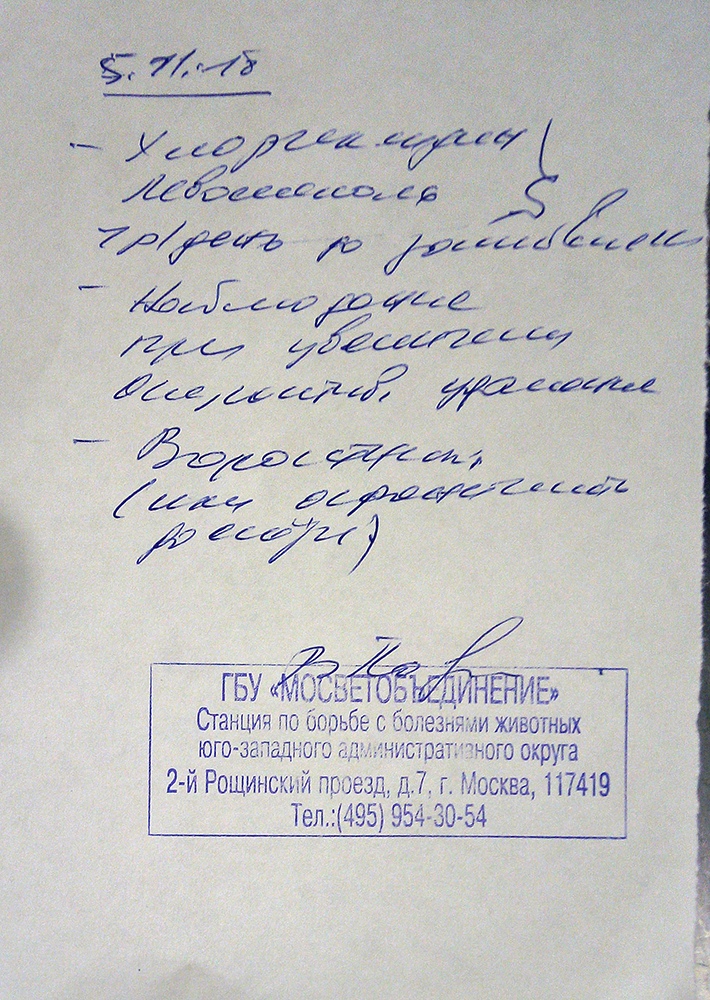 5.11.18
- Хлоргексидин
Левомеколь
р/день до заживлен
- Наблюдение
при увеличении
оперативн. удаление
- Воротник
(или ограничить
доступ)
ГБУ «МОСВЕТОБЪЕДИНЕНИЕ»
Станция по борьбе с болезнями животных
юго-западного административного округа
2-й Рощинский проезд, д.7, г. Москва, 117419
Тел.:(495) 954-30-54